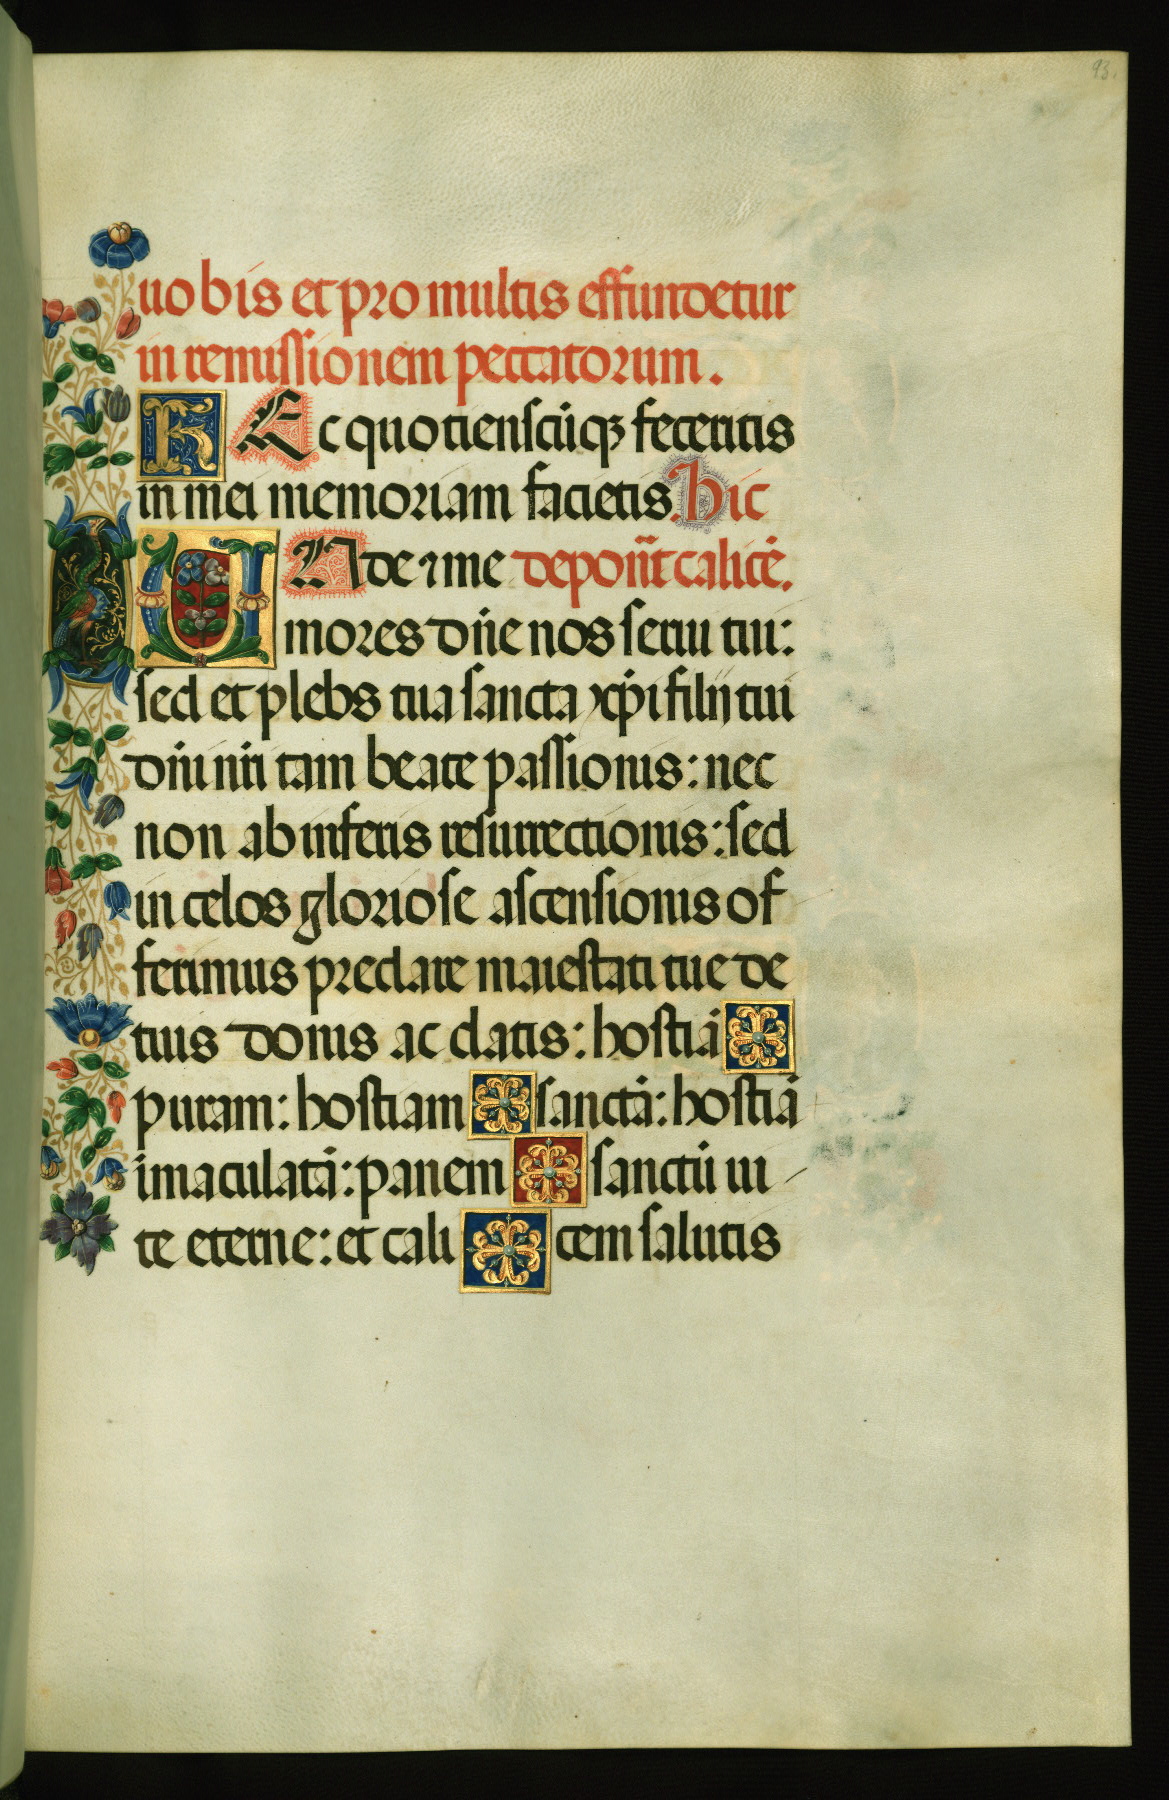 93.
uobis et pro multis effundetur
in remissionem peccatorum.
HEc quotienscūqꝫ feceritis
in mei memoriam facietis. Hic
UNde ⁊ me deponit̄ calicē.
mores dn̄e nos serui tui:
sed et plebs tua sancta xp̄i filij tui
dn̄i nr̄i tam beate passionis: nec
non ab inferis resurrectionis: sed
in celos gloriose ascensionis of
ferimus preclare maiestati tue de
tuis donis ac datis: hostiā
puram: hostiam sanctā: hostiā
imaculatā: panem sanctū ui
te eterne: et cali cem salutis